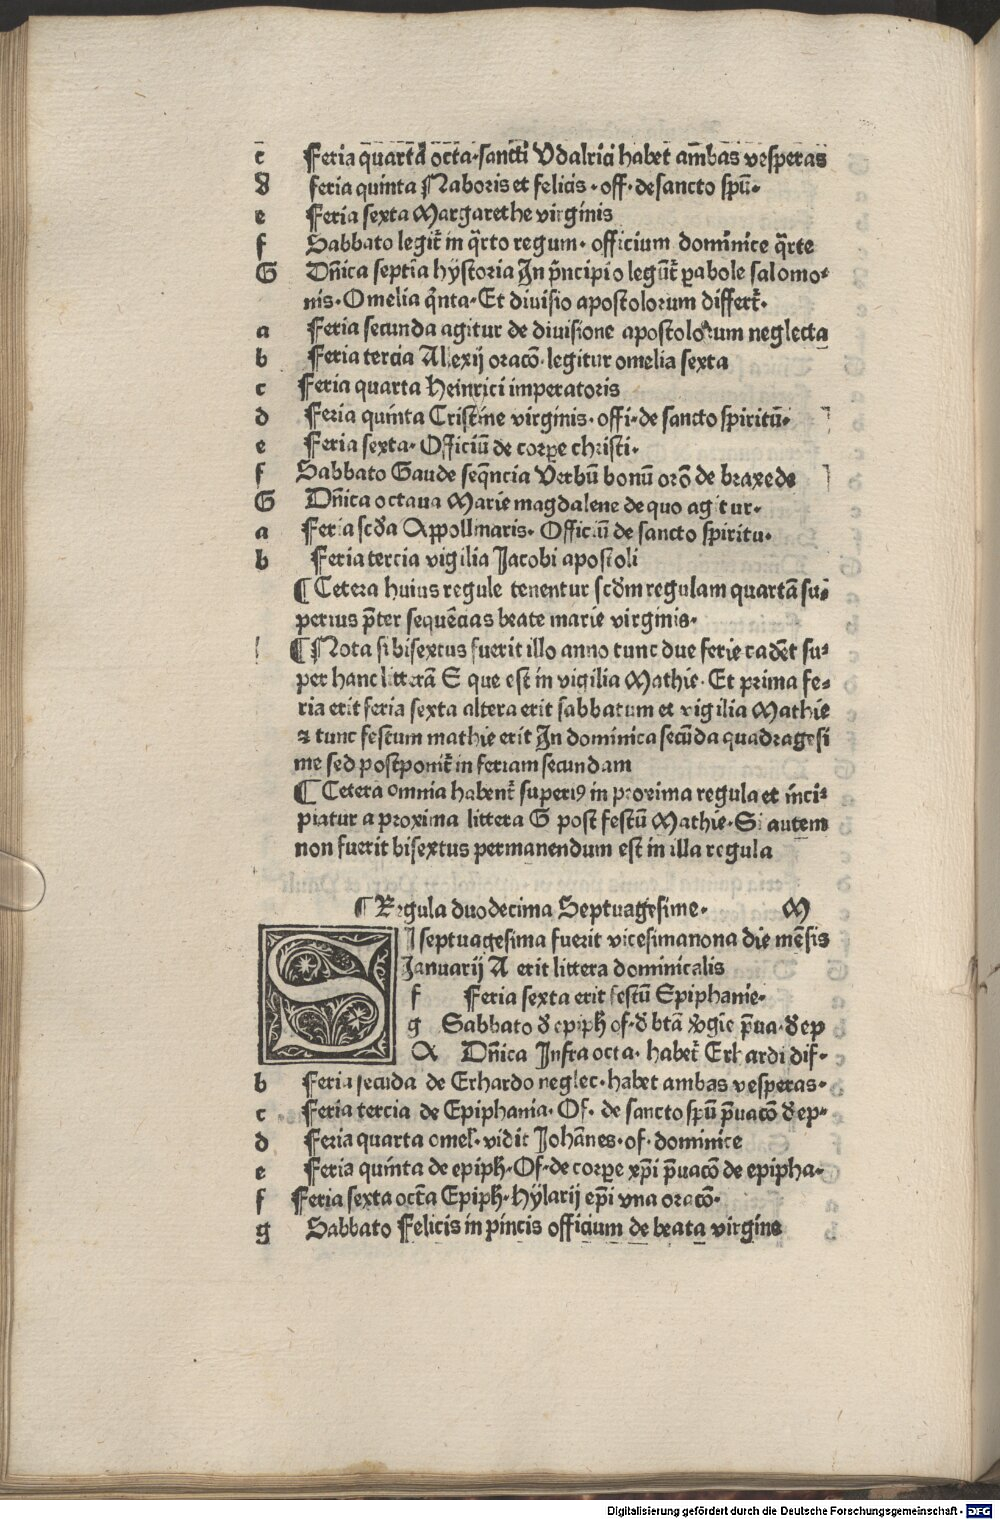 c Feria quarta octa·sancti Vdalrici habet ambas vesperas
d feria quinta Naboris et felicis·off·de sancto spū·
e Feria sexta Margarethe virginis
f Sabbato legit̄ in q̄rto regum·officium dominice q̄rte
G Dn̄ica septīa hystoria In p̄ncipio legūt̄ ꝑabole salomo⸗
nis·Omelia qͥnta·Et diuisio apostolorum differt̄·
a Feria secunda agitur de diuisione apostolorum neglecta
b Feria tercia Allexij oracō·legitur omelia sexta
c Feria quarta Heinrici imperatoris
d Feria quinta Cristine virginis·offi·de sancto spiritū·
e Feria sexta·Officiū de corꝑe christi·
f Sabbato Gaude seq̄ncia Verbū bonū orō de braxede
G Dn̄ica octaua Marie magdalene de quo agitur·
a Feria scd̄a Appollinaris·Officiū de sancto spiritu·
b Feria tercia vigilia Jacobi apostoli
¶ Cetera huius regule tenentur scd̄m regulam quartā su⸗
perius p̄ter sequēcias beate marie virginis·
¶ Nota si bisextus fuerit illo anno tunc due ferie cadēt su⸗
per hanc litterā S que est in vigilia Mathie·Et prima fe⸗
ria erit feria sexta altera erit sabbatum et vigilia Mathie
⁊ tunc festum mathie erit In dominica secūda quadragesi
me sed postponit̄ in feriam secundam
¶ Cetera omnia habent̄ superiꝰ in proxima regula et inci⸗
piatur a proxima littera G post festū Mathie·Si autem
non fuerit bisextus permanendum est in illa regula
¶ Regula duodecima Septuagesime· M
SI septuagesima fuerit vicesimanona die mēsis
Januarij A erit littera dominicalis
f Feria sexta erit festū Epiphanie·
g Sabbato d̄ epiph̄ of·d̄ btā v̄ogīe p̄ua·d̄ ep
A Dn̄ica Infra octa·habet̄ Erhardi dif·
b Feria secūda de Erhardo neglec·habet ambas vesperas·
c Feria tercia de Epiphania·Of·de sancto spū p̄uacō d̄ ep⸗
d Feria quarta omel·vidit Johānes·of·dominice
e Feria quinta de epiph̄·Of·de corꝑe xp̄i p̄uacō de epipha·
f Feria sexta octa Epiph̄·Hylarij ep̄i vna oracō·
g Sabbato Felicis in pincis officium de beata virgine
Digitalisierung gefördert durch die Deutsche Forschungsgemeinschaft - DFG